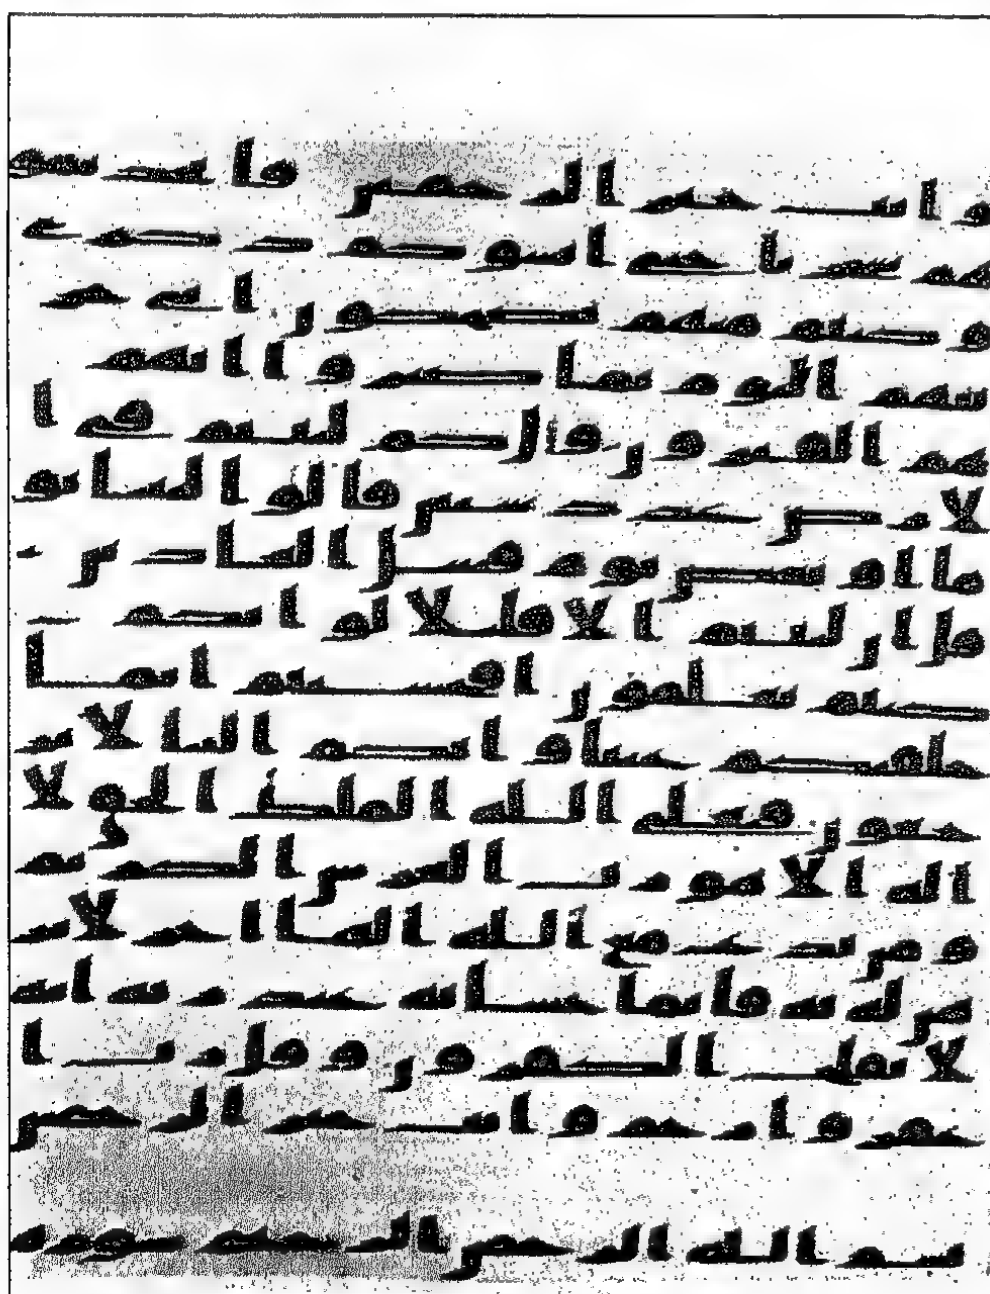 و انت خير الرحمين فاتخذتمو
هم سخريا حتى انسوكم ذكرى
و كنتم منهم تضحكون انى جز
يتهم اليوم بما صبروا انهم
هم الفائزون قل كم لبثتم فى ا
لارض عدد سنين قالوا لبثنا يو
ما او بعض يوم فسل العادين
قل ان لبثتم الا قليلا لو انكم
كنتم تعلمون افحسبتم انما
خلقنكم عبثا و انكم الينا لا تر
جعون فتعلى الله الملك الحق لا
اله الا هو رب العرش الكريم
و من يدع مع الله الها اخر لا بر
هن له به فانما حسابه عند ربه انه
لا يفلح الكفرون و قل رب ا
غفر و ارحم و انت خير الرحمين
بسم الله الرحمن الرحيم سورة